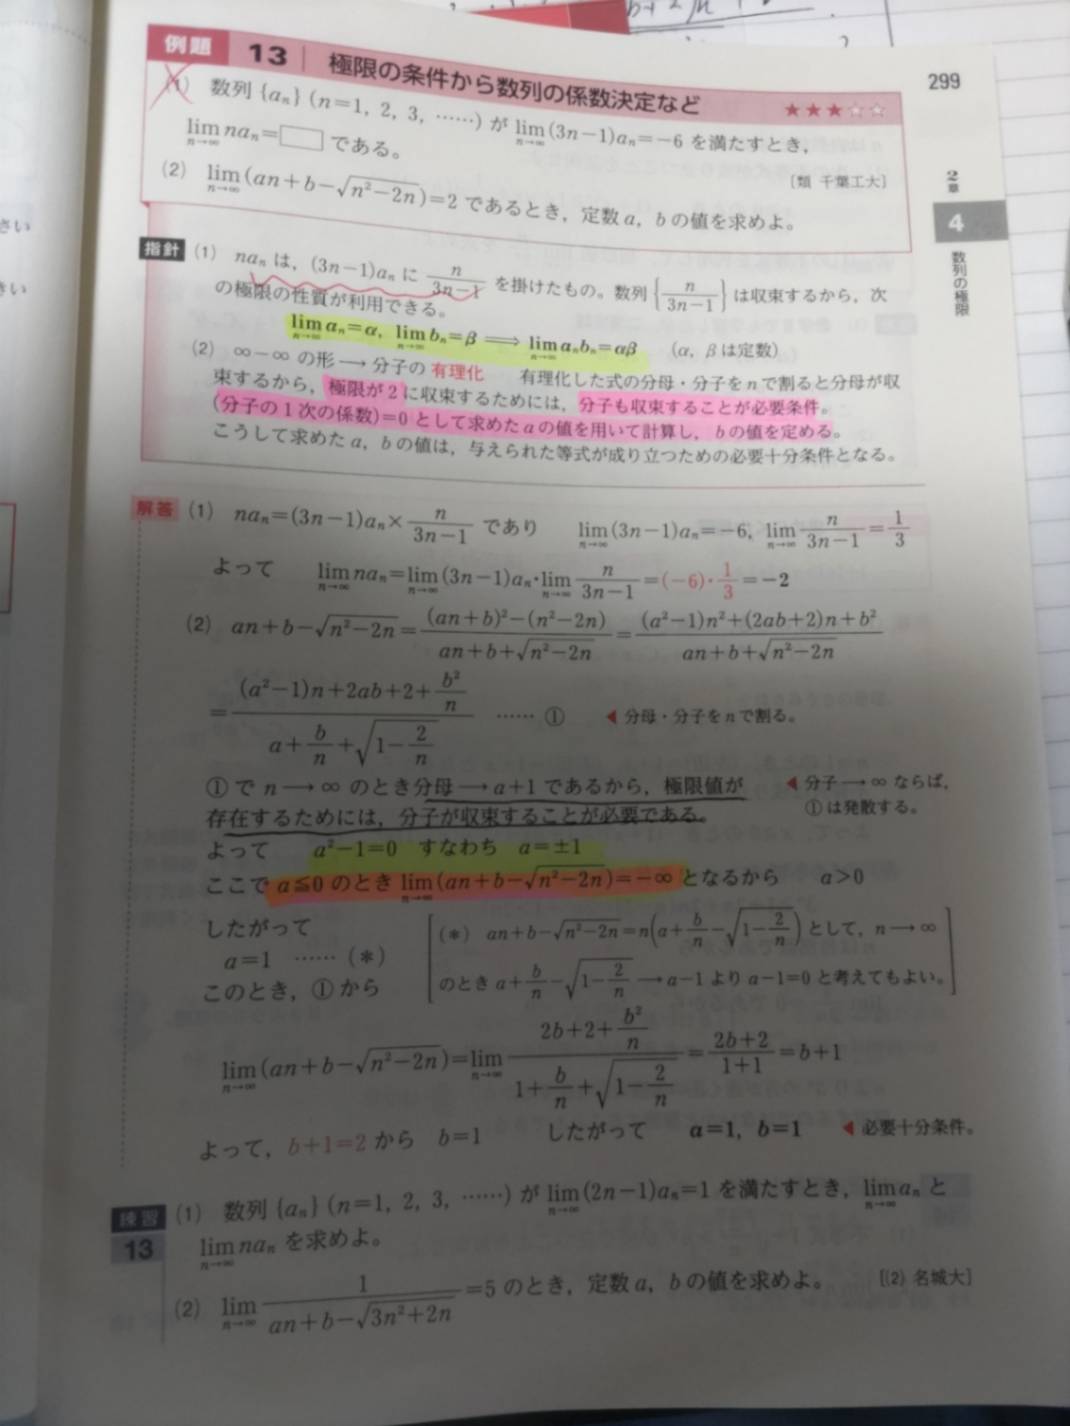 299
例題 13 極限の条件から数列の係数決定など ★★★☆☆
(1) 数列 {aₙ} (n=1, 2, 3, ……) が lim[n→∞](3n−1)aₙ=−6 を満たすとき,
lim[n→∞] naₙ=□ である。
[類 千葉工大]
(2) lim[n→∞](an+b−√(n²−2n))=2 であるとき, 定数 a, b の値を求めよ。
2章
4
数列の極限
指針 (1) naₙ は, (3n−1)aₙ に n/(3n−1) を掛けたもの。数列 {n/(3n−1)} は収束するから, 次
の極限の性質が利用できる。
lim[n→∞] aₙ=α, lim[n→∞] bₙ=β ⟹ lim[n→∞] aₙbₙ=αβ (α, β は定数)
(2) ∞−∞ の形 ⟶ 分子の 有理化 有理化した式の分母・分子を n で割ると分母が収
束するから, 極限が 2 に収束するためには, 分子も収束することが必要条件。
(分子の 1 次の係数)=0 として求めた a の値を用いて計算し, b の値を定める。
こうして求めた a, b の値は, 与えられた等式が成り立つための必要十分条件となる。
解答 (1) naₙ=(3n−1)aₙ×n/(3n−1) であり lim[n→∞](3n−1)aₙ=−6, lim[n→∞] n/(3n−1)=1/3
よって lim[n→∞] naₙ=lim[n→∞](3n−1)aₙ·lim[n→∞] n/(3n−1)=(−6)·1/3=−2
(2) an+b−√(n²−2n)=((an+b)²−(n²−2n))/(an+b+√(n²−2n))=((a²−1)n²+(2ab+2)n+b²)/(an+b+√(n²−2n))
=((a²−1)n+2ab+2+b²/n)/(a+b/n+√(1−2/n)) …… ① ◀ 分母・分子を n で割る。
① で n⟶∞ のとき分母⟶a+1 であるから, 極限値が ◀ 分子⟶∞ ならば,
存在するためには, 分子が収束することが必要である。 ① は発散する。
よって a²−1=0 すなわち a=±1
ここで a≦0 のとき lim[n→∞](an+b−√(n²−2n))=−∞ となるから a>0
したがって
a=1 …… (*)
[(*) an+b−√(n²−2n)=n(a+b/n−√(1−2/n)) として, n⟶∞
のとき a+b/n−√(1−2/n)⟶a−1 より a−1=0 と考えてもよい。]
このとき, ① から
lim[n→∞](an+b−√(n²−2n))=lim[n→∞] (2b+2+b²/n)/(1+b/n+√(1−2/n))=(2b+2)/(1+1)=b+1
よって, b+1=2 から b=1 したがって a=1, b=1 ◀ 必要十分条件。
練習 13 (1) 数列 {aₙ} (n=1, 2, 3, ……) が lim[n→∞](2n−1)aₙ=1 を満たすとき, lim[n→∞] aₙ と
lim[n→∞] naₙ を求めよ。
(2) lim[n→∞] 1/(an+b−√(3n²+2n))=5 のとき, 定数 a, b の値を求めよ。 [(2) 名城大]